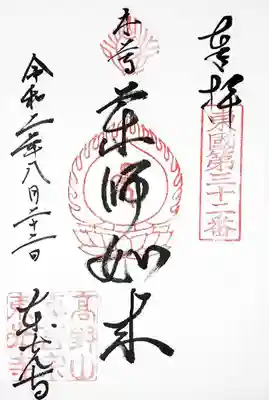 奉拝
東國第三十二番
本尊
薬師如来
令和二年八月二十二日
東光寺
高野山
東光寺